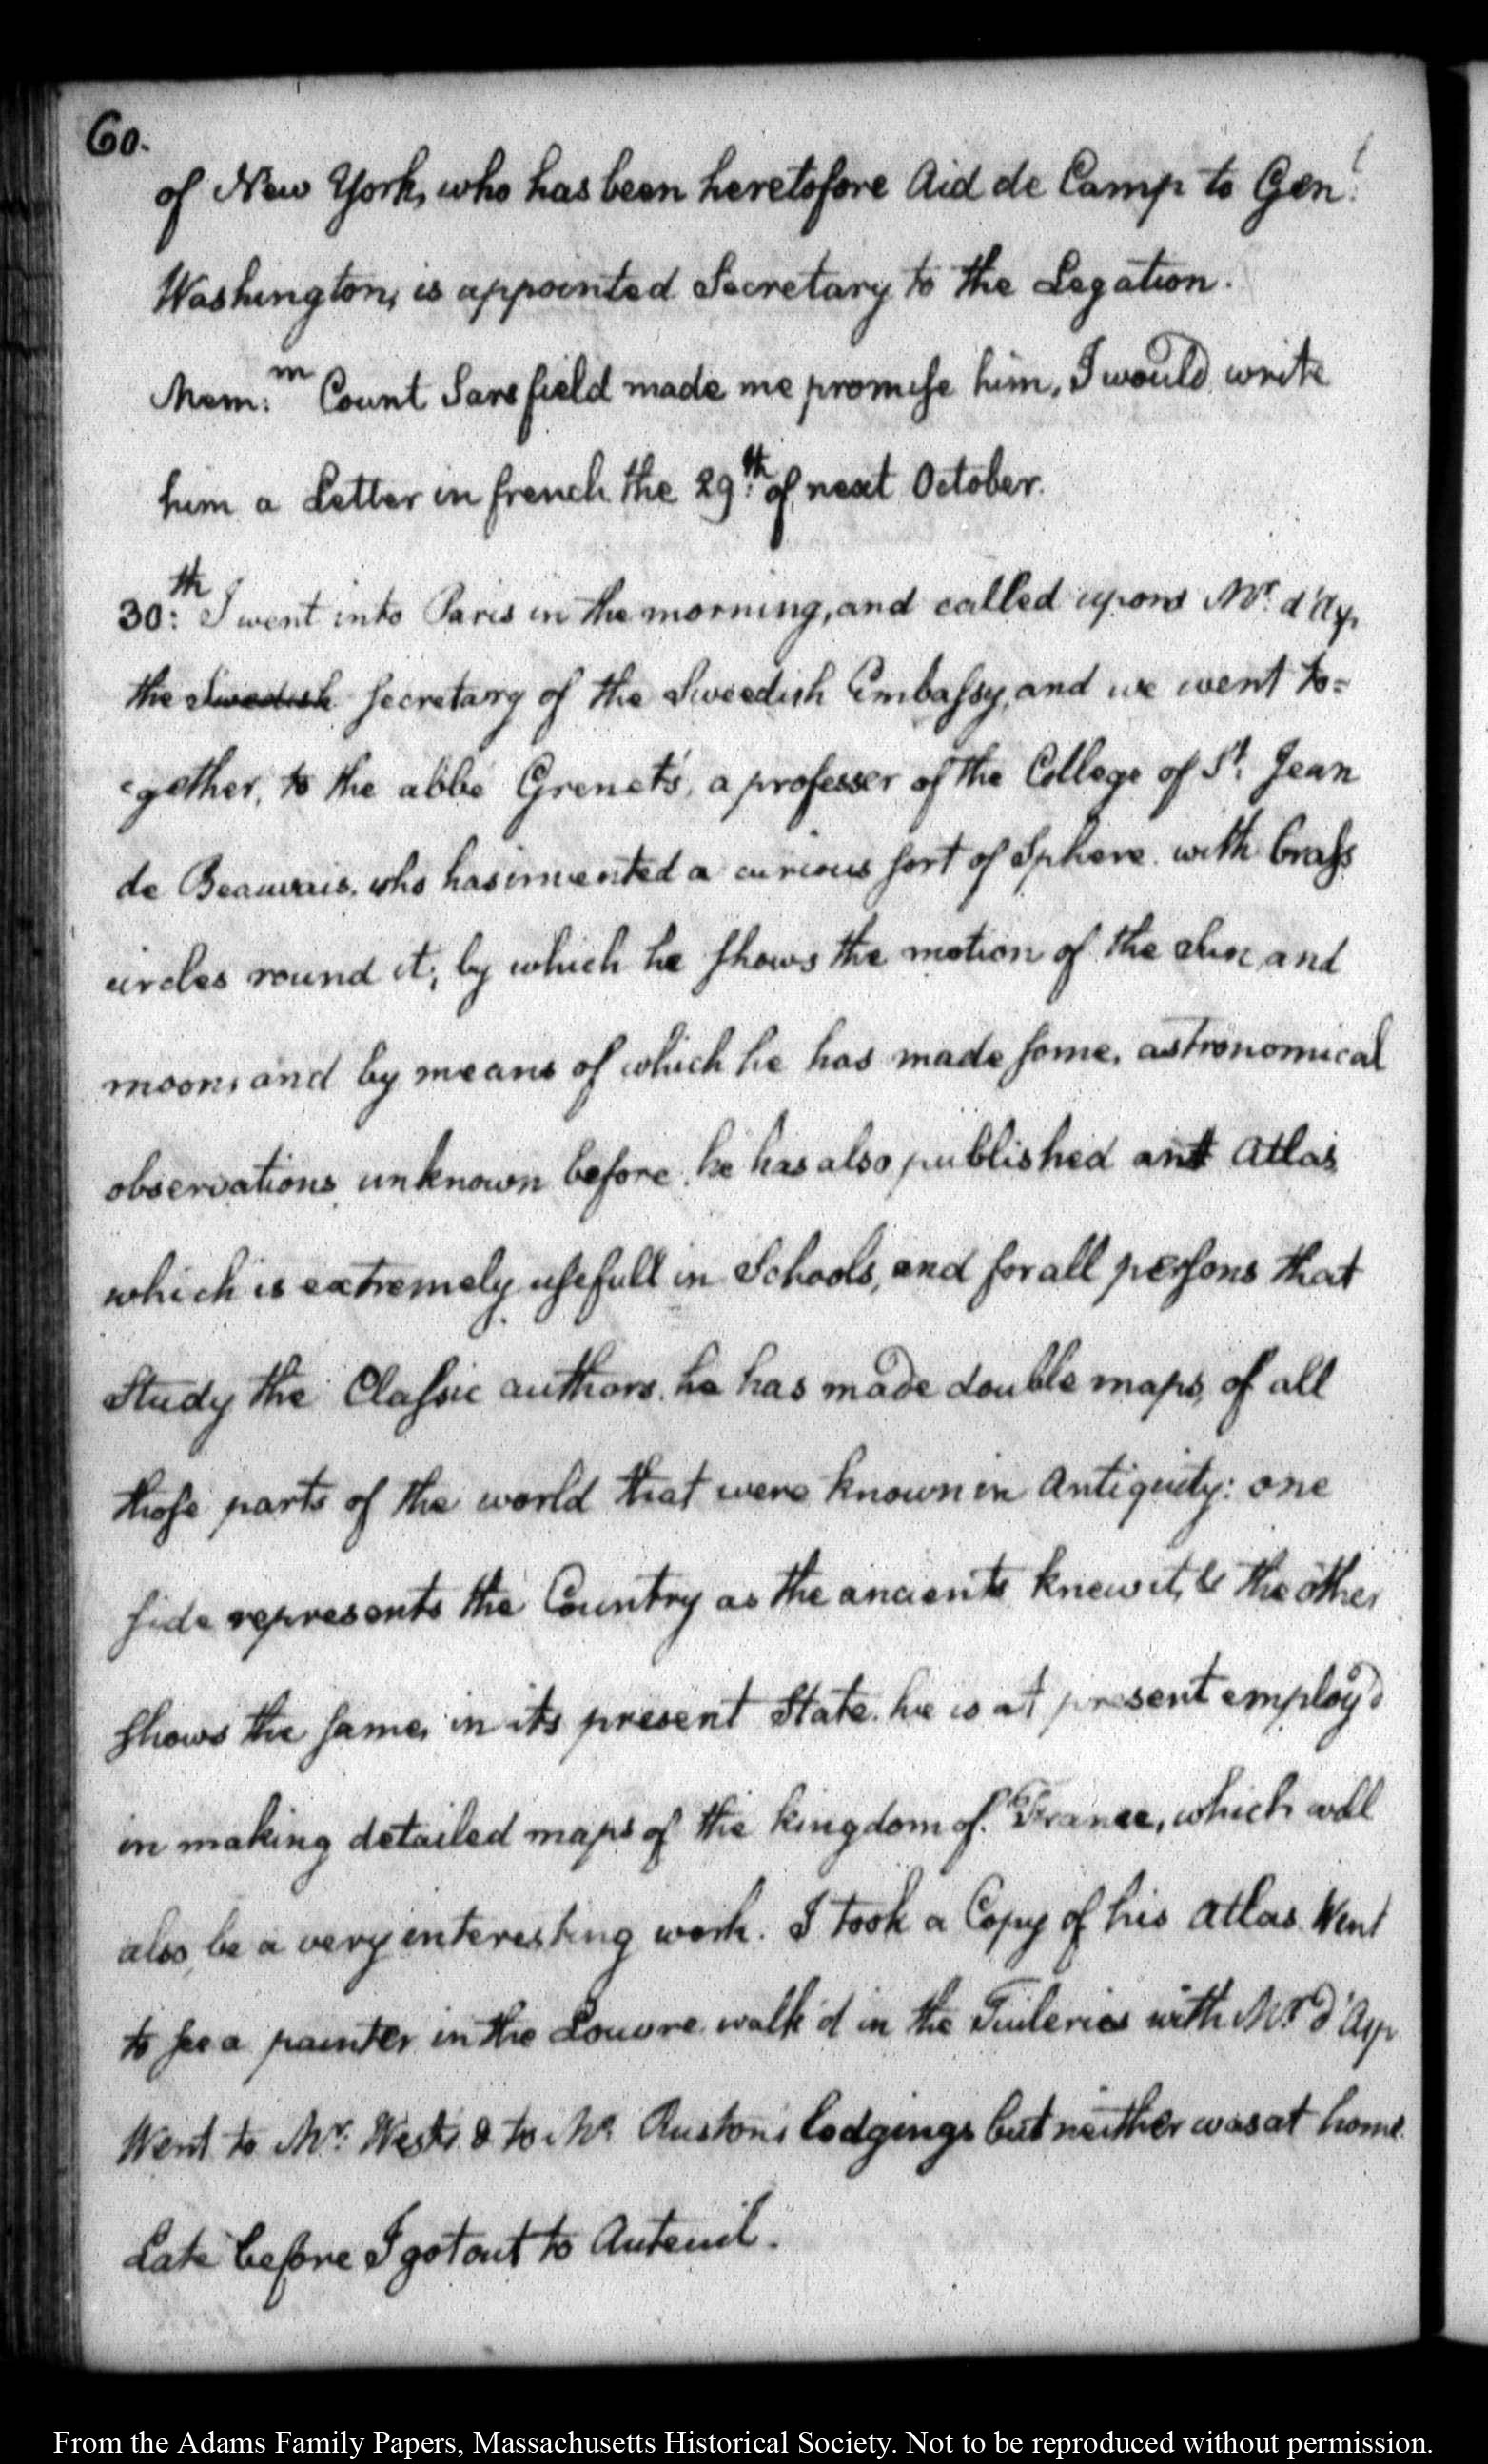 60.
of New York, who has been heretofore Aid de Camp to Genl.
Washington, is appointed Secretary to the Legation.
Mem:m Count Sarsfield made me promise him, I would write
him a Letter in french the 29th of next October.
30:th I went into Paris in the morning, and called upon Mr. d'Asp,
the Swedish secretary of the Sweedish Embassy, and we went to=
=gether, to the abbé Grenet's, a professer of the College of St. Jean
de Beauvais, who has invented a curious sort of Sphere with brass
circles round it, by which he shows the motion of the Sun and
moon, and by means of which he has made some, astronomical
observations unknown before. he has also published an Atlas
which is extremely usefull in Schools, and for all persons that
Study the Classic authors. he has made double maps, of all
those parts of the world that were known in Antiquity: one
side represents the Country as the ancients knew it, & the other
shows the same, in its present State. he is at present employ'd
in making detailed maps of the kingdom of France, which will
also, be a very interesting work. I took a Copy of his atlas. Went
to see a painter in the Louvre. walk'd in the Tuileries with Mr. d'Asp
Went to Mr. West's & to Mr. Ruston's lodgings but neither was at home.
Late before I got out to Auteuil.
From the Adams Family Papers, Massachusetts Historical Society. Not to be reproduced without permission.